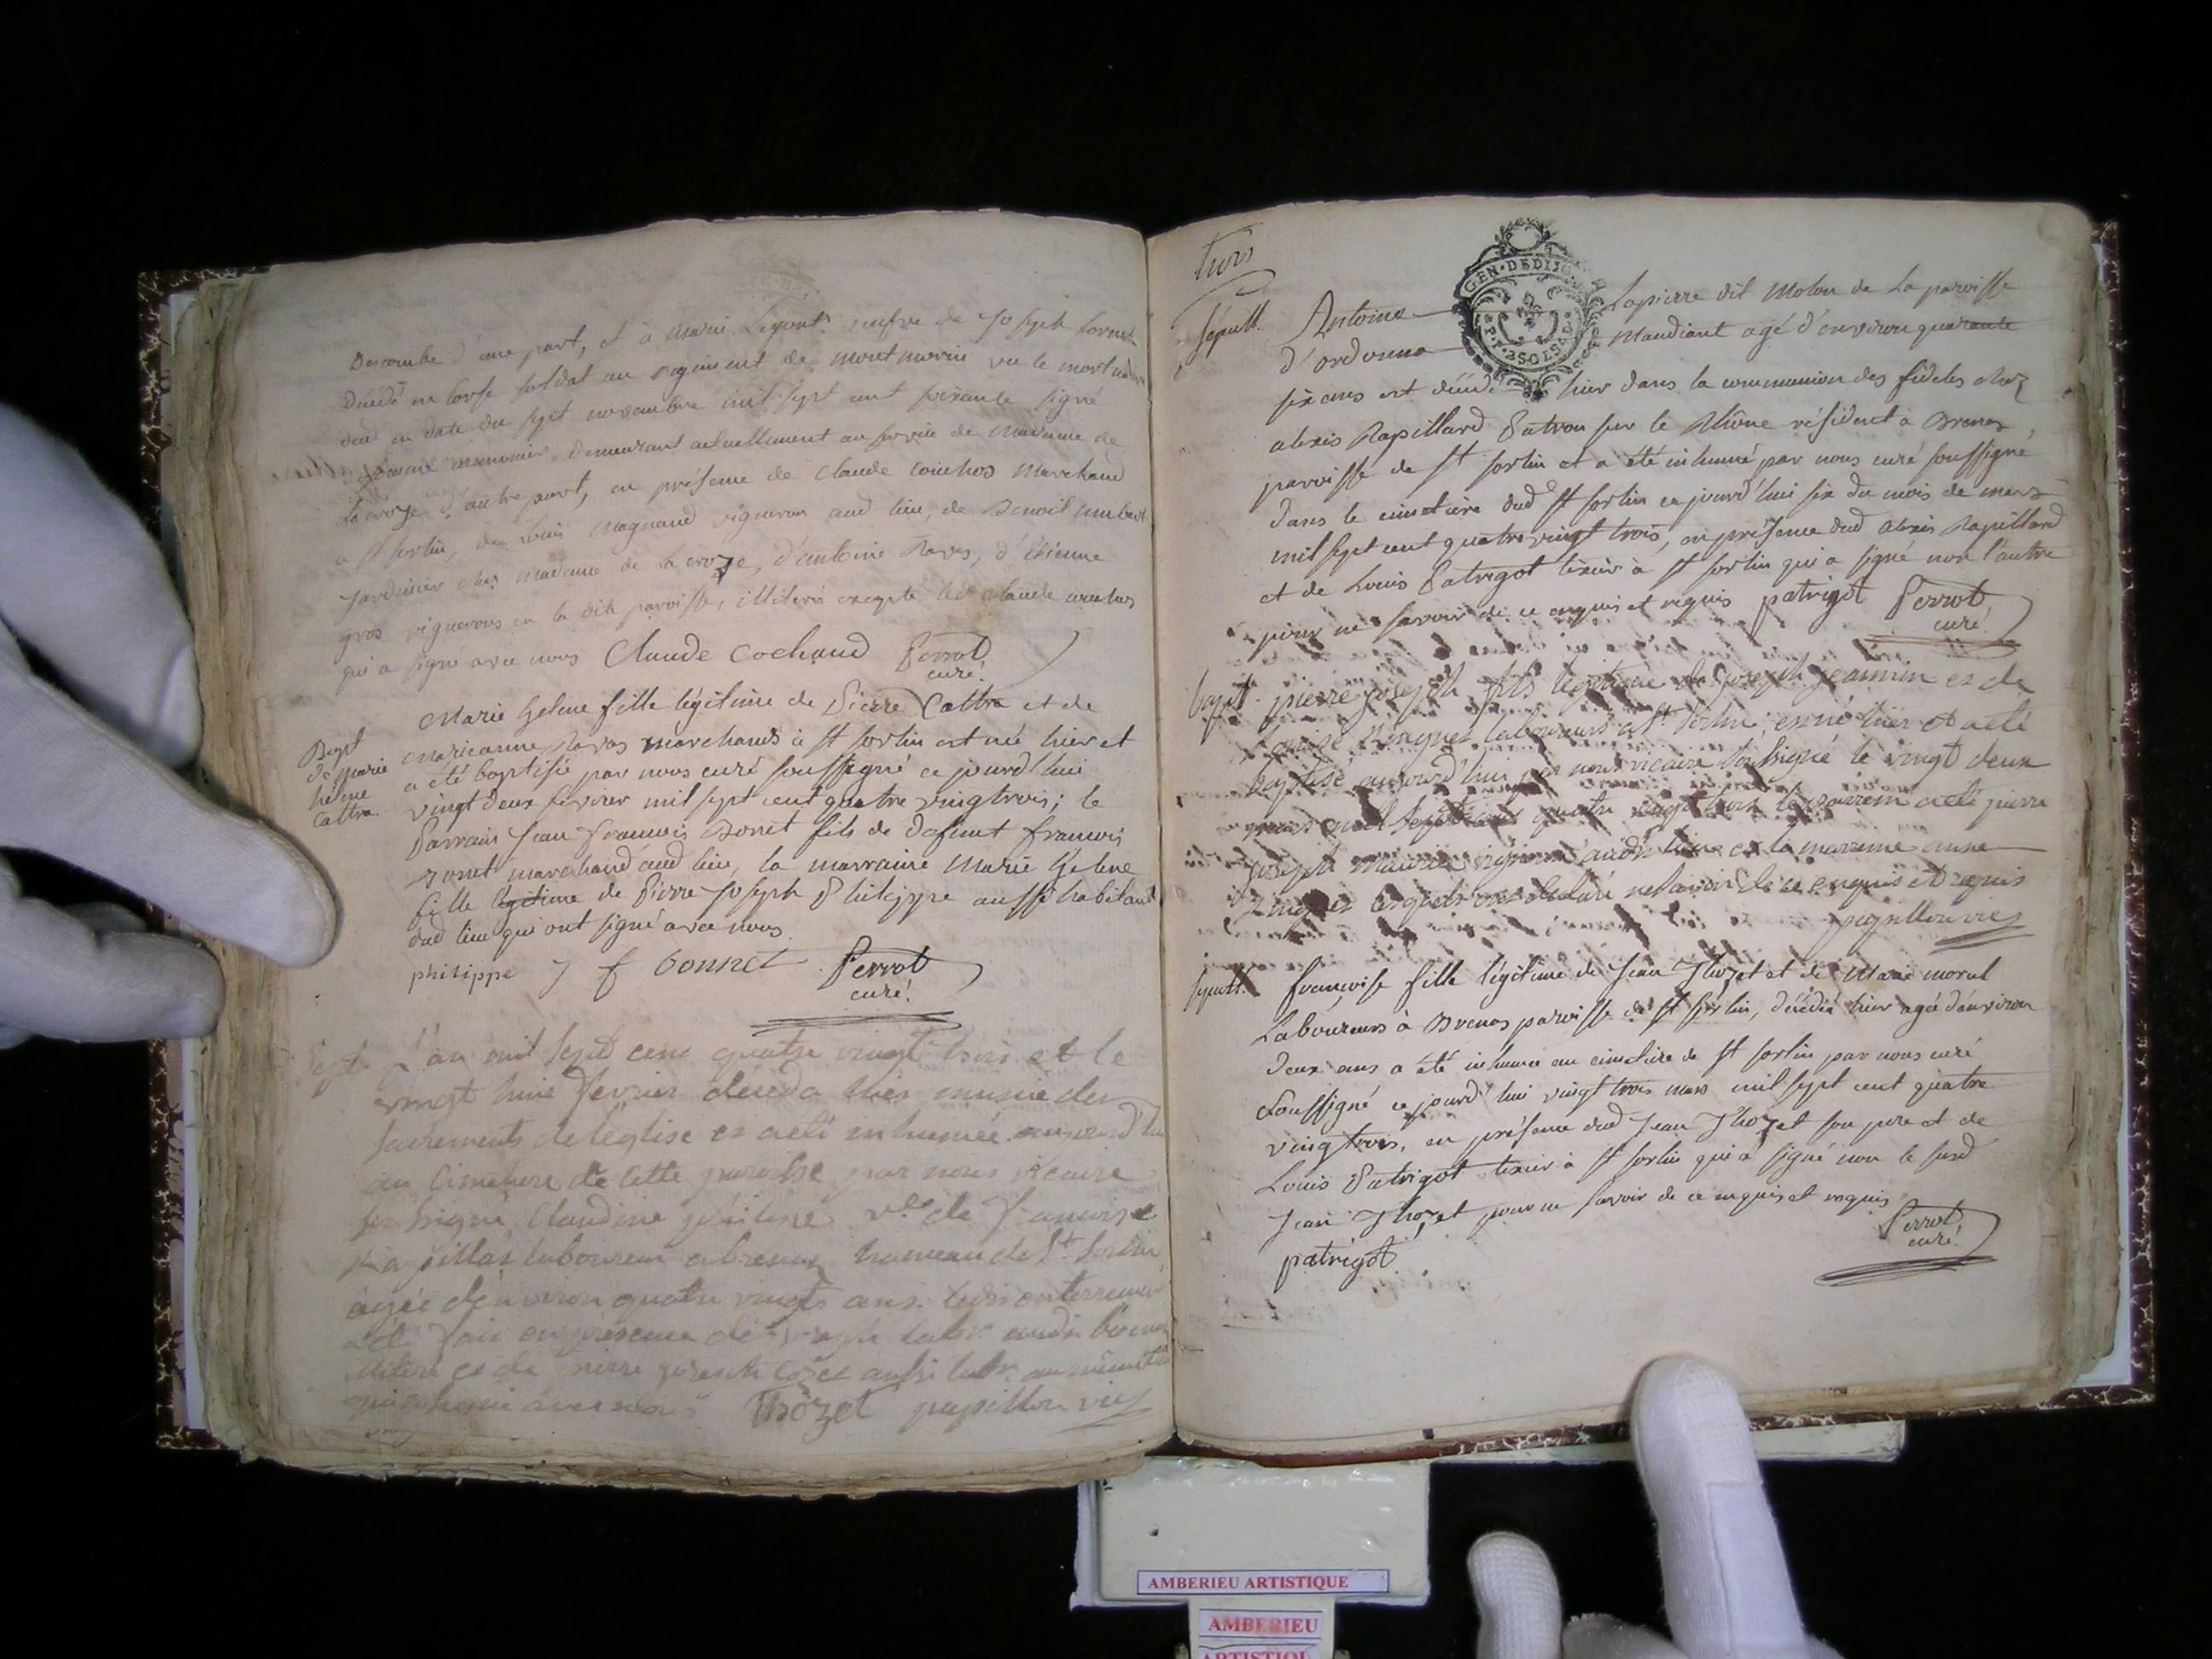 Descombe d'une part, et à Marie veufve de Joseph
décédé en Corse soldat au regiment de montmorin vu le mortuaire
dud en date du sept novembre mil sept cent soixante signé
aumonier, demeurant actuellement au service de Madame de
la croze d'autre part, en présence de Claude Marchand
a st sorlin, de Louis magnand vigneron aud lieu, de Benoit
jardinier chez madame de la croze, d'antoine Ravas, d'Etienne
gros vignerons en la dite paroisse, illiteré excepté led Claude
qui a signé avec nous Claude Cochand Perrot
curé
Bapt
de marie
heleine
Cattra
Marie helene fille légitime de Pierre Cattra et de
marieanne Ravas marchands à st sorlin est née hier et
a été baptisée par nous curé soussigné ce jourd'hui
vingt deux fevrier mil sept cent quatre vingtrois; le
Parrain Jean François Bonet fils de defunt françois
Bonet marchand aud lieu, la marraine Marie helene
fille légitime de Pierre Joseph Philippe aussi habitant
dud lieu qui ont signé avec nous
philippe J f bonnet Perrot
curé
Sept. L'an mil sept cent quatre vingt trois et le
vingt huit fevrier décéda hier munie des
sacrements de l'église et a eté inhumée aujourd'hui
au cimetiere de cette paroisse par nous vicaire
soussigné, Claudine philipe vve de françois
Rapillar laboureur a brenas hameau de st sorlin
agée d'environ quatre vingts ans. ledit enterrement
a été fait en présence de Joseph labr. audit brenas
et de Pierre Joseph aussi labr. au même lieu
qui a signé avec nous Thozet papillon vic
trois
sépult. Antoine Lapierre dit Molon de la paroisse
d'ordonna Mandiant agé d'environ quarante
six ans est décédé hier dans la communion des fideles chez
alexis Rapillard Patron sur le Rhône résident à Brenas
paroisse de st sorlin et a été inhumé par nous curé soussigné
dans le cimetiere dud st sorlin ce jourd'hui six du mois de mars
mil sept cent quatre vingt trois, en présence dud alexis Rapillard
et de Louis Patrigot texier à st sorlin qui a signé non l'autre
pour ne savoir de ce enquis et requis patrigot Perrot
curé
bapt. pierre joseph fils légitime de joseph jeannin et de
laboureurs a st sorlin, est né hier et a eté
baptisé aujourd'hui par nous vicaire soussigné le vingt deux
mars mil sept cent quatre vingt trois le parrein a eté pierre
joseph vigneron audit lieu et la mareine anne
lesquels ont declaré ne savoir de ce enquis et requis
papillon vic
sepult. françoise fille légitime de Jean Thozet et de Marie morel
Laboureurs à Brenas paroisse de st sorlin, décédée hier agée d'environ
deux ans a été inhumée au cimetiere de st sorlin par nous curé
soussigné ce jourd'hui vingt trois mars mil sept cent quatre
vingtrois, en présence dud Jean Thozet son pere et de
Louis Patrigot texier à st sorlin qui a signé non le susd
Jean Thozet pour ne savoir de ce enquis et requis
patrigot Perrot
curé
GEN. DE DIJON
2 SOLS
AMBERIEU ARTISTIQUE
AMBERIEU
ARTISTIQUE